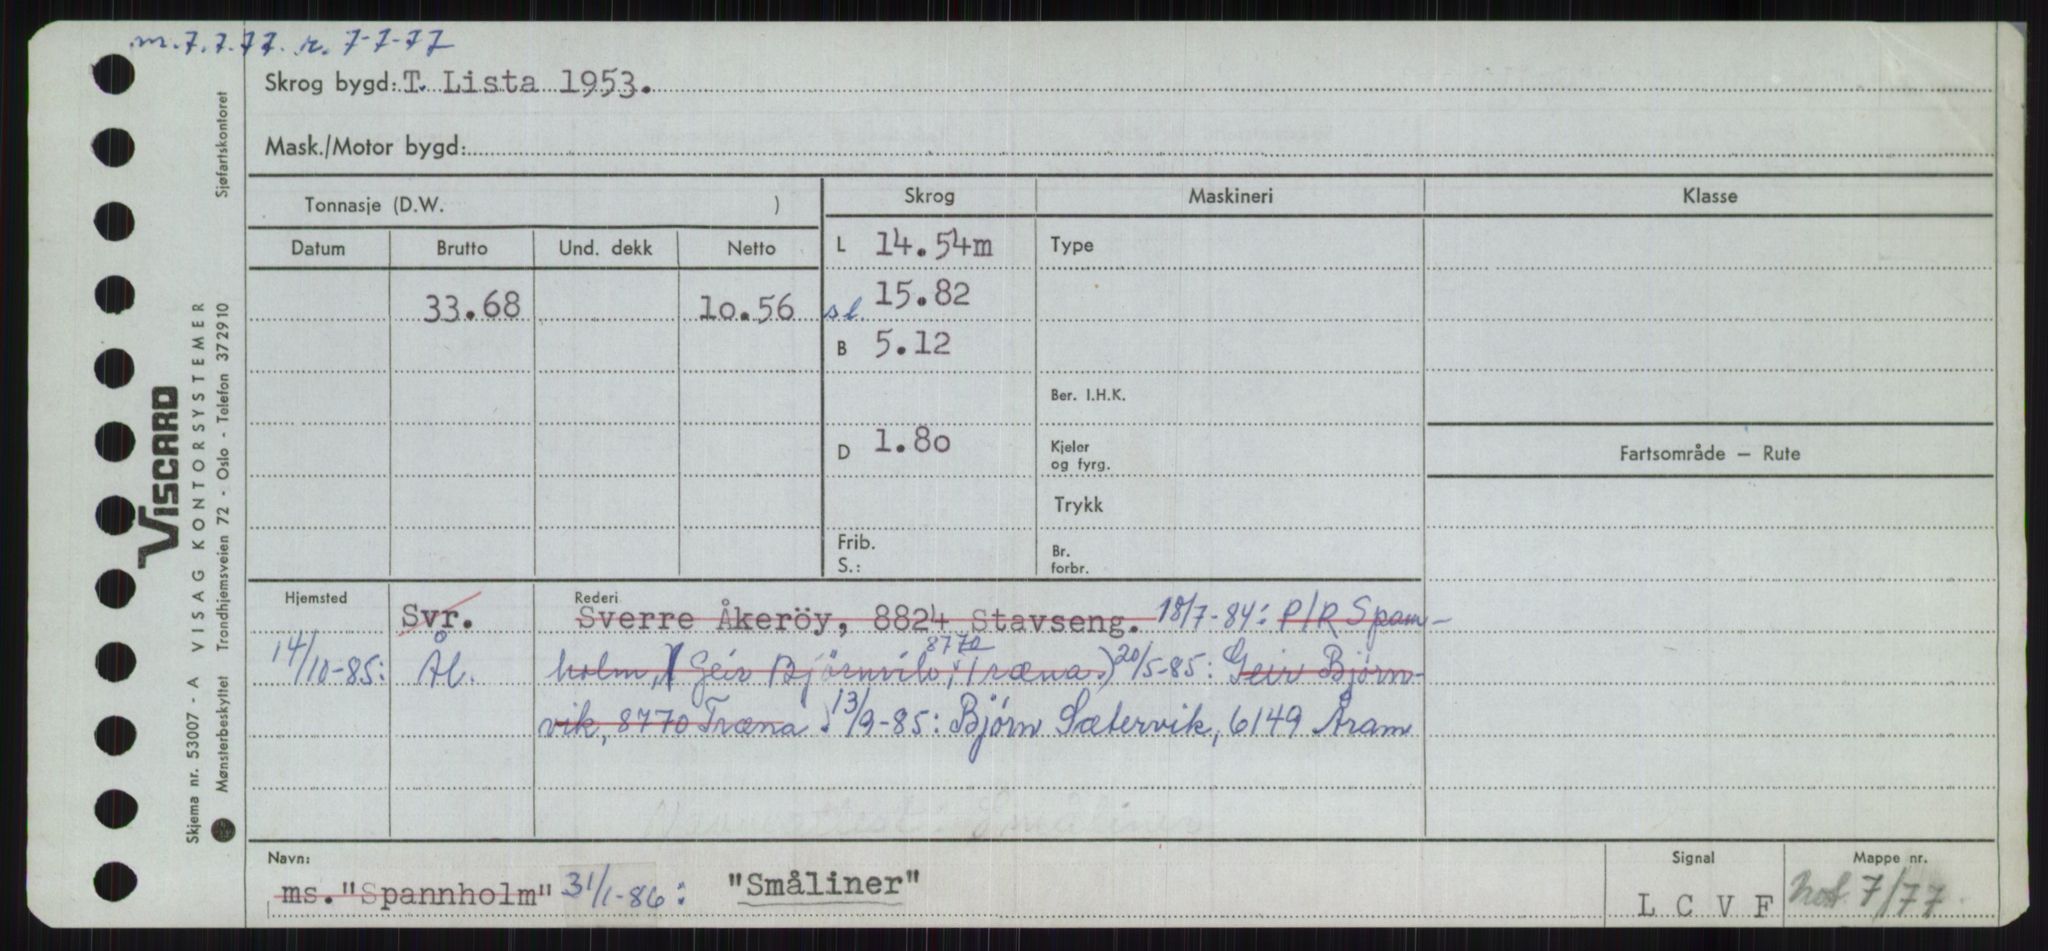 m. 7.7.77. r. 7-7-77
Skrog bygd: T. Lista 1953.
Mask./Motor bygd:
Tonnasje (D.W. )
Skrog Maskineri Klasse
Datum Brutto Und. dekk Netto
L 14.54m Type
33.68 10.56 sl. 15.82
B 5.12
Ber. I.H.K.
D 1.80 Kjeler
og fyrg.
Fartsområde – Rute
Trykk
Frib.
S.:
Br.
forbr.
Hjemsted Rederi
Svr. Sverre Åkeröy, 8824 Stavseng. 18/7-84: P/R Spann-
14/10-85: Ål. holm, (Geir Björnvik, 8770 Træna.) 20/5-85: Geir Bjørn-
vik, 8770 Træna. 13/9-85: Bjørn Sætervik, 6149 Åram
Navn: Signal Mappe nr.
ms. "Spannholm" 31/1-86: "Småliner" L C V F Not. 7/77.
Sjøfartskontoret
VISCARD
VISAG KONTORSYSTEMER
Trondhjemsveien 72 - Oslo - Telefon 372910
Skjema nr. 53007 - A
Mønsterbeskyttet